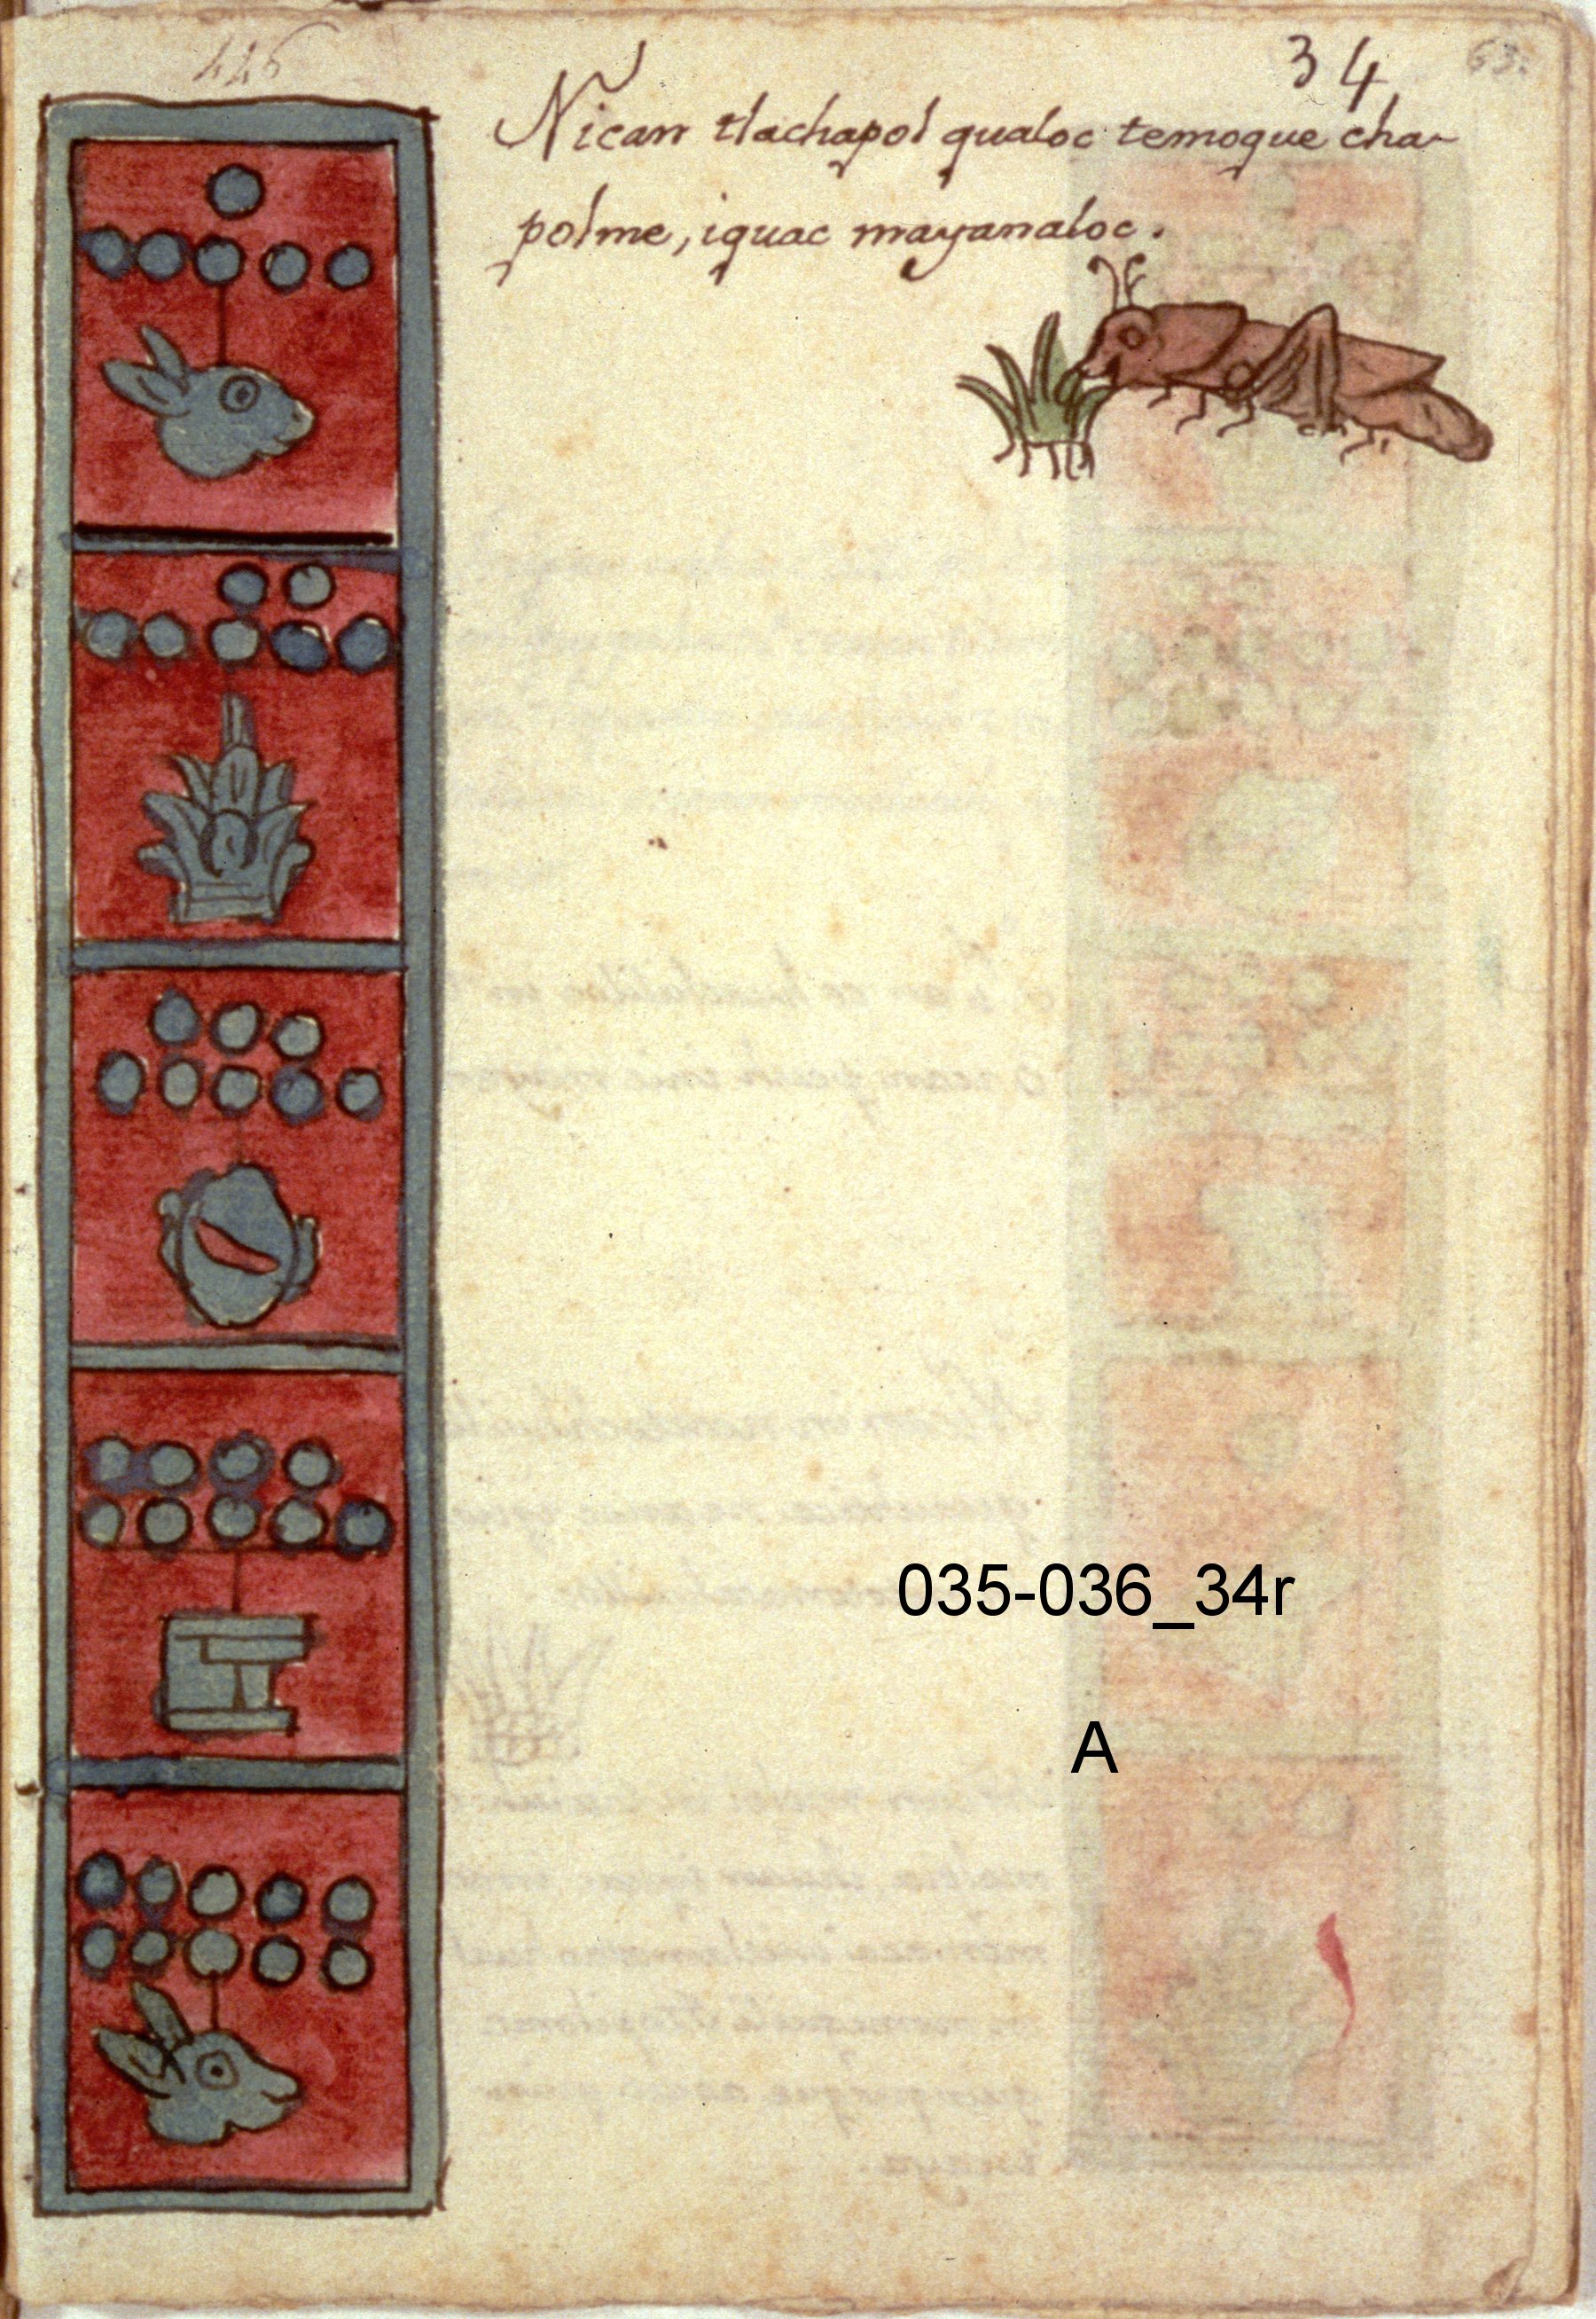 446
34
63.
Nican tlachapol qualoc temoque cha-
polme, iquac mayanaloc.
035-036_34r
A